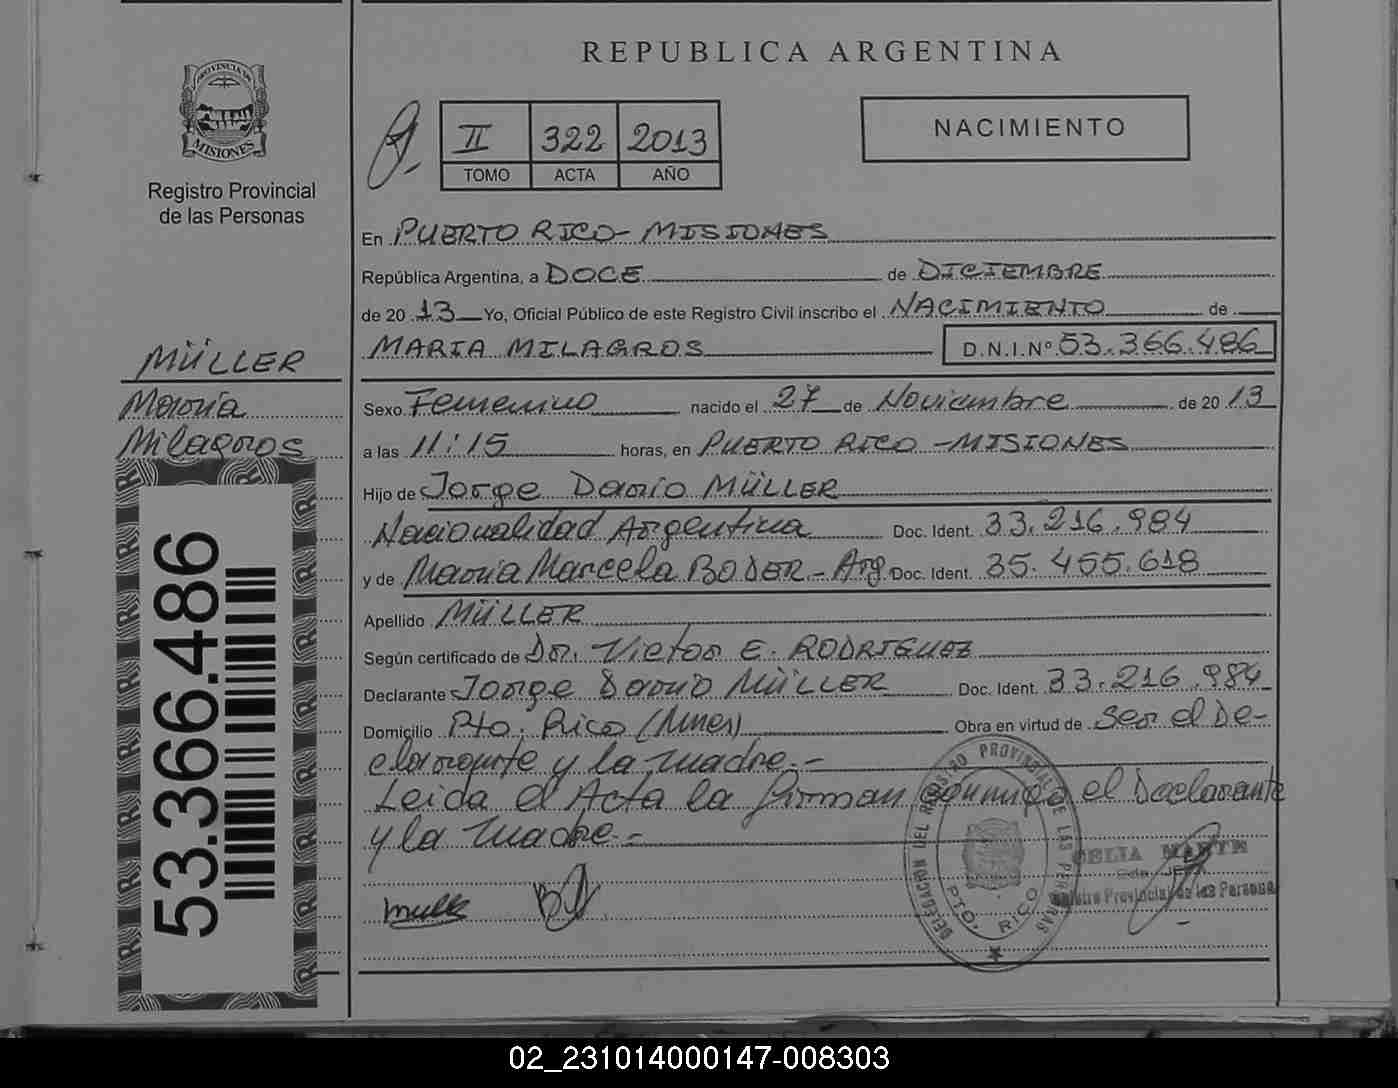 REPUBLICA ARGENTINA
PROVINCIA DE
MISIONES
Registro Provincial
de las Personas
II 322 2013
TOMO ACTA AÑO
NACIMIENTO
En PUERTO RICO - MISIONES
República Argentina, a DOCE de DICIEMBRE
de 20 13 Yo, Oficial Público de este Registro Civil inscribo el NACIMIENTO de
MARIA MILAGROS D.N.I.Nº 53.366.486
MÜLLER
María
Milagros
53.366.486
Sexo Femenino nacido el 27 de Noviembre de 20 13
a las 11:15 horas, en PUERTO RICO - MISIONES
Hijo de Jorge Dario MÜLLER
Nacionalidad Argentina Doc. Ident. 33.216.984
y de Maria Marcela BODER - Arg. Doc. Ident. 35.455.618
Apellido MÜLLER
Según certificado de Dr. Victor E. RODRIGUEZ
Declarante Jorge Dario MÜLLER Doc. Ident. 33.216.984
Domicilio Pto. Rico (Mnes) Obra en virtud de Ser el De-
clarante y la madre.-
Leida el Acta la firman conmigo el Declarante
y la madre.-
DELEGACION DEL REGISTRO PROVINCIAL DE LAS PERSONAS
PTO. RICO
CELIA
Registro Provincial de las Personas
02_231014000147-008303